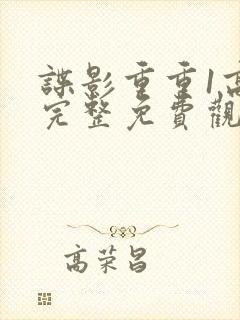 諜影重重1高
完整免費觀
高荣昌